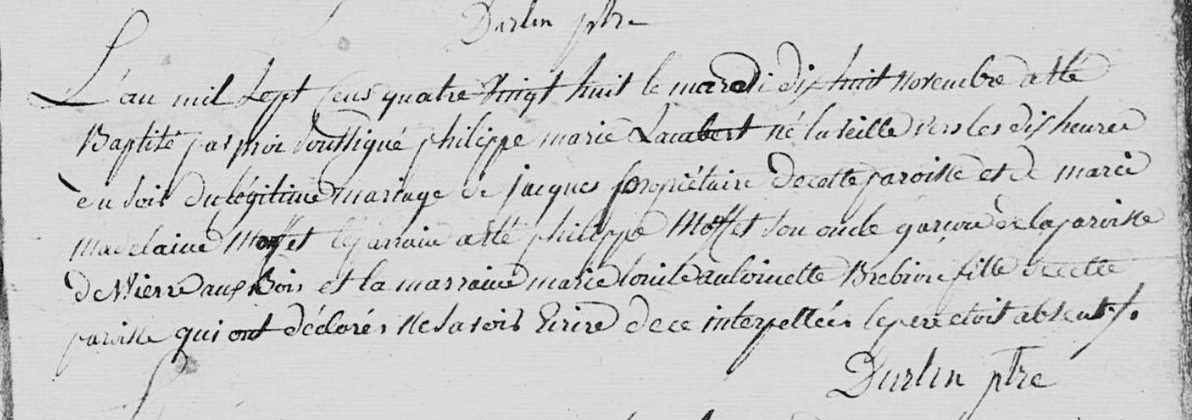 Durlin ptre
L'an mil sept cens quatre vingt huit le mardi dix huit novembre a été
Baptisé par moi soussigné philippe marie Lambert né la veille vers les dix heures
du soir du légitime mariage de jacques propriétaire de cette paroisse et de marie
madelaine Moffet le parrain a été philippe Moffet son oncle garçon de la paroisse
de Wierre aux Bois et la marraine marie louise antoinette Brebion fille de cette
paroisse qui ont déclarés ne savoir Ecrire de ce interpellés le pere etoit absent.
Durlin ptre